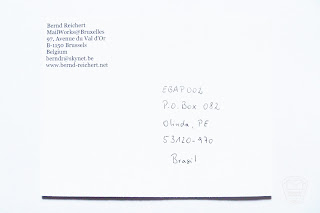 Bernd Reichert
MailWorks@Bruxelles
97, Avenue du Val d'Or
B-1150 Brussels
Belgium
berndr@skynet.be
www.bernd-reichert.net
EBAP002
P.O. Box 082
Olinda, PE
53120-970
Brasil